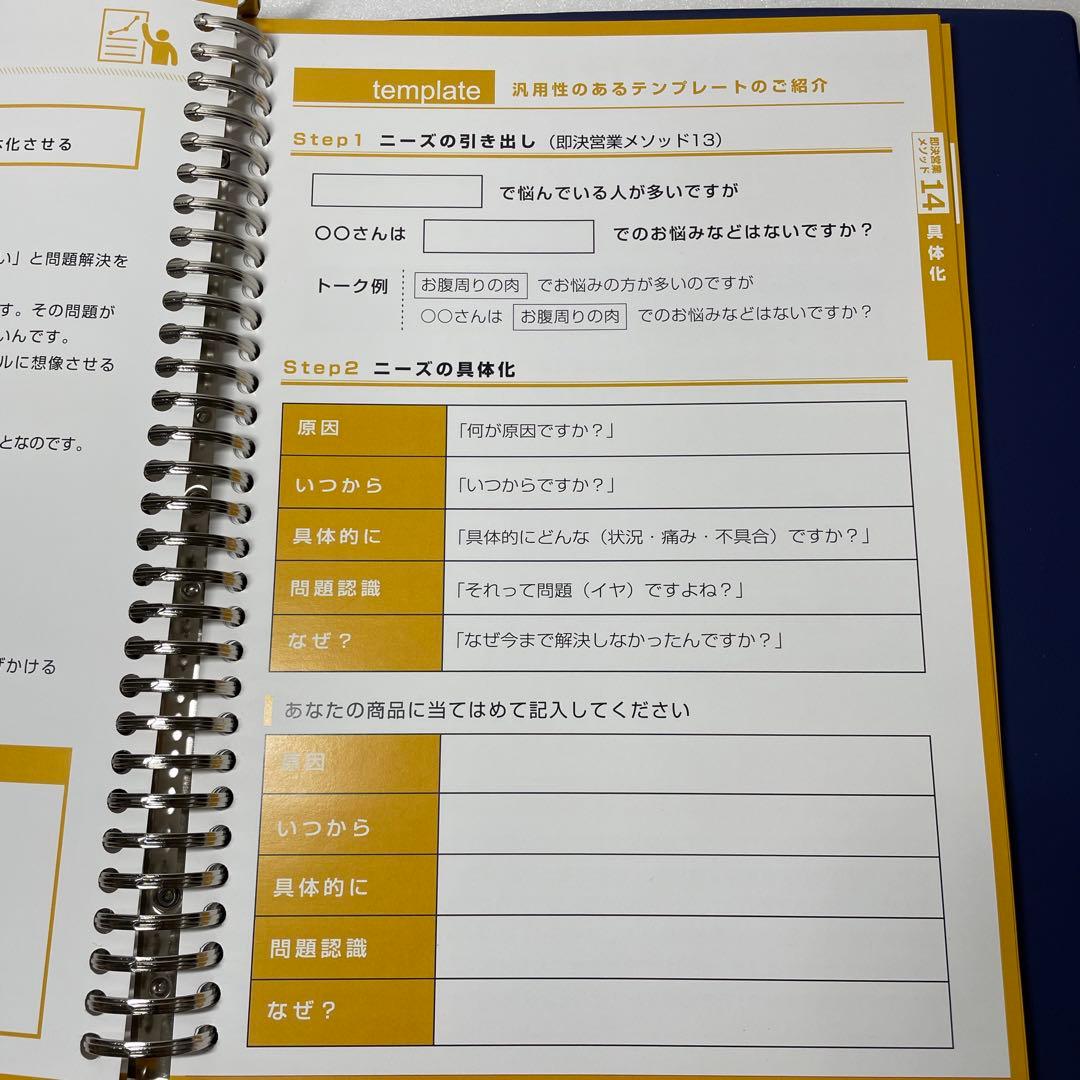 本化させる
い」と問題解決を
す。その問題が
いんです。
ルに想像させる
となのです。
げかける
template 汎用性のあるテンプレートのご紹介
Step1 ニーズの引き出し（即決営業メソッド13）
で悩んでいる人が多いですが
〇〇さんは でのお悩みなどはないですか？
トーク例 お腹周りの肉 でお悩みの方が多いのですが
〇〇さんは お腹周りの肉 でのお悩みなどはないですか？
Step2 ニーズの具体化
原因 「何が原因ですか？」
いつから 「いつからですか？」
具体的に 「具体的にどんな（状況・痛み・不具合）ですか？」
問題認識 「それって問題（イヤ）ですよね？」
なぜ？ 「なぜ今まで解決しなかったんですか？」
あなたの商品に当てはめて記入してください
原因
いつから
具体的に
問題認識
なぜ？
即決営業
メソッド
14
具体化